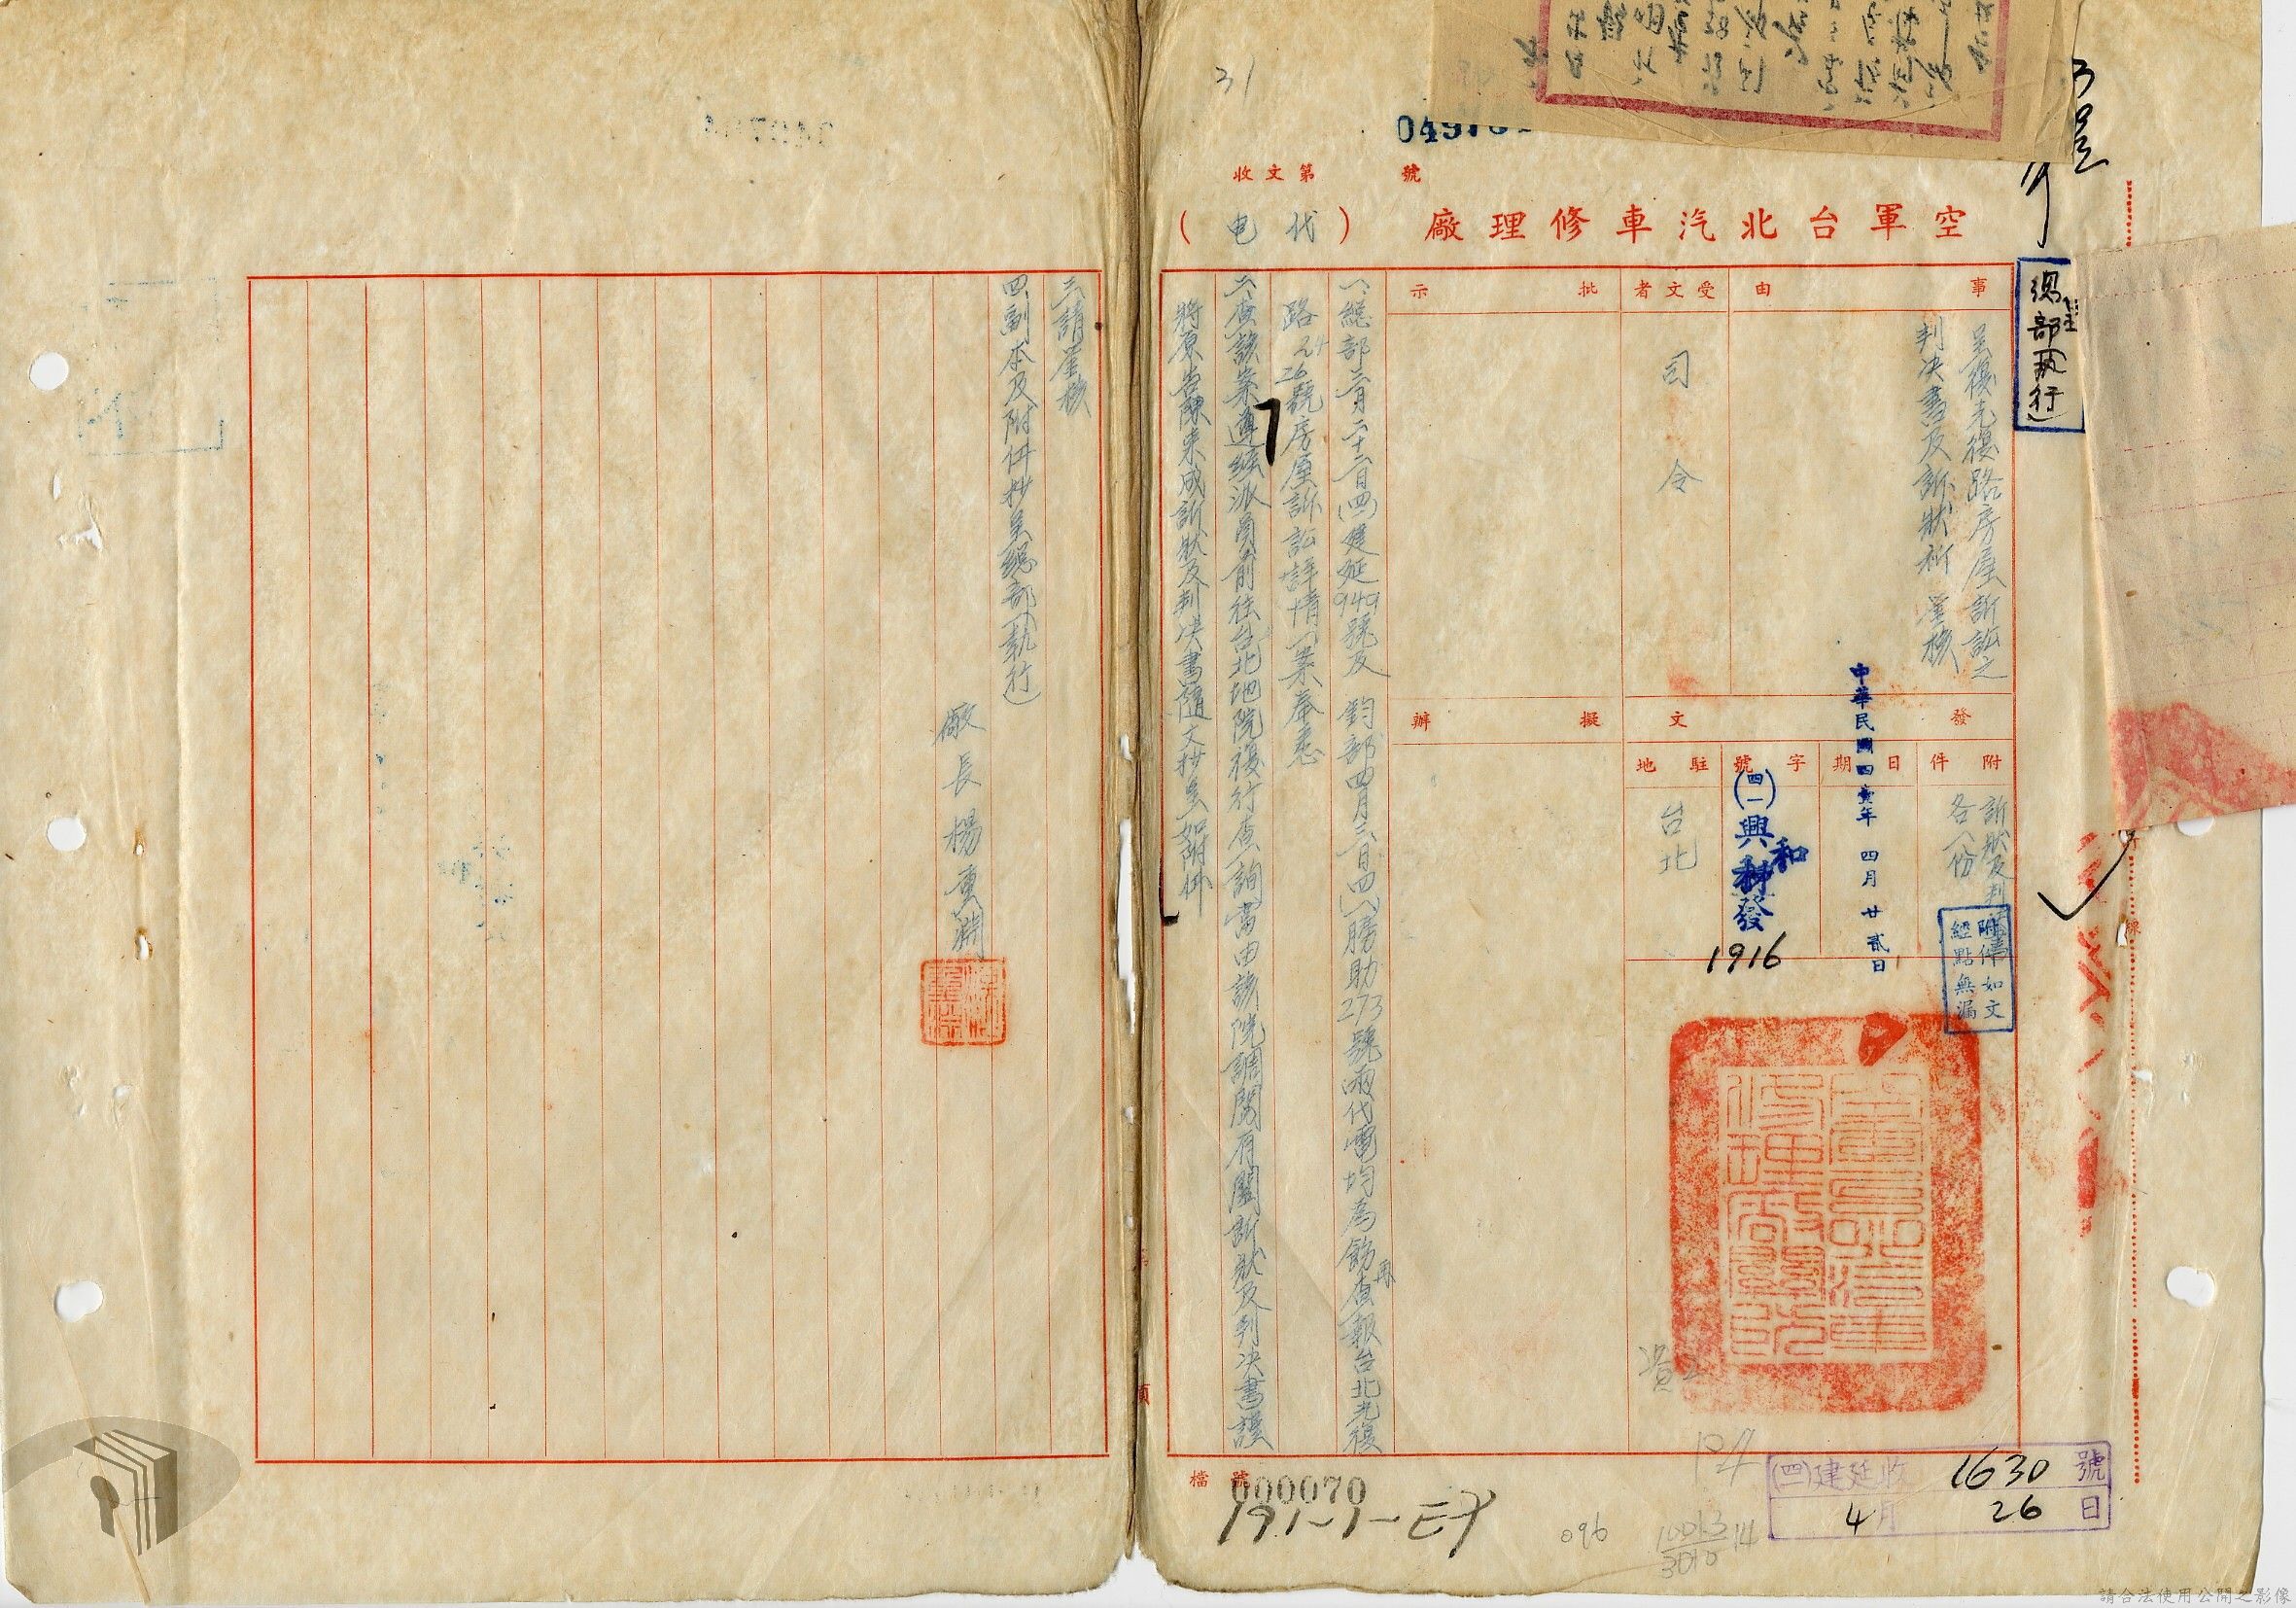 31
收文第　　號
空軍台北汽車修理廠（代电）
事由
呈復光復路房屋訴訟之
判决書及訴狀祈　鑒核
受文者
司令
批示
發文
附件
訴狀及判决書
各一份
附件如文
經點無漏
日期
中華民國四壹年 四月 廿貳日
字號
(四一)興和發
1916
駐地
台北
擬辦
總部(執行)
一、總部三月二十六日(四一)建延949號及　鈞部四月三日(四一)勝助273號兩代電均為飭再查報台北光復
路24 26號房屋訴訟詳情一案奉悉
二、查該案遵經派員前往台北地院復行查詢當由該院調閱有關訴狀及判决書謹
將原告陳來成訴狀及判决書隨文抄呈如附件
三、請鑒核
四、副本及附件抄呈總部(執行)
廠長楊重淵
空軍台北汽車修理廠關防
檔號
000070
191-1-
096
(四一)建延收 1630 號
4月 26日
請合法使用公開之影像